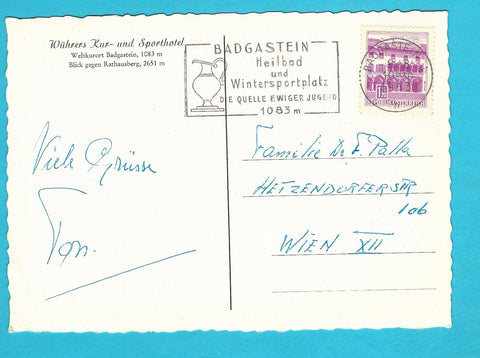 Wührers Kur- und Sporthotel
Weltkurort Badgastein, 1083 m
Blick gegen Rathausberg, 2651 m
BADGASTEIN
Heilbad
und
Wintersportplatz
DIE QUELLE EWIGER JUGEND
1083 m
REPUBLIK ÖSTERREICH
Viele Grüsse
Familie Dr. F. Palla
HETZENDORFERSTR
106
WIEN XII